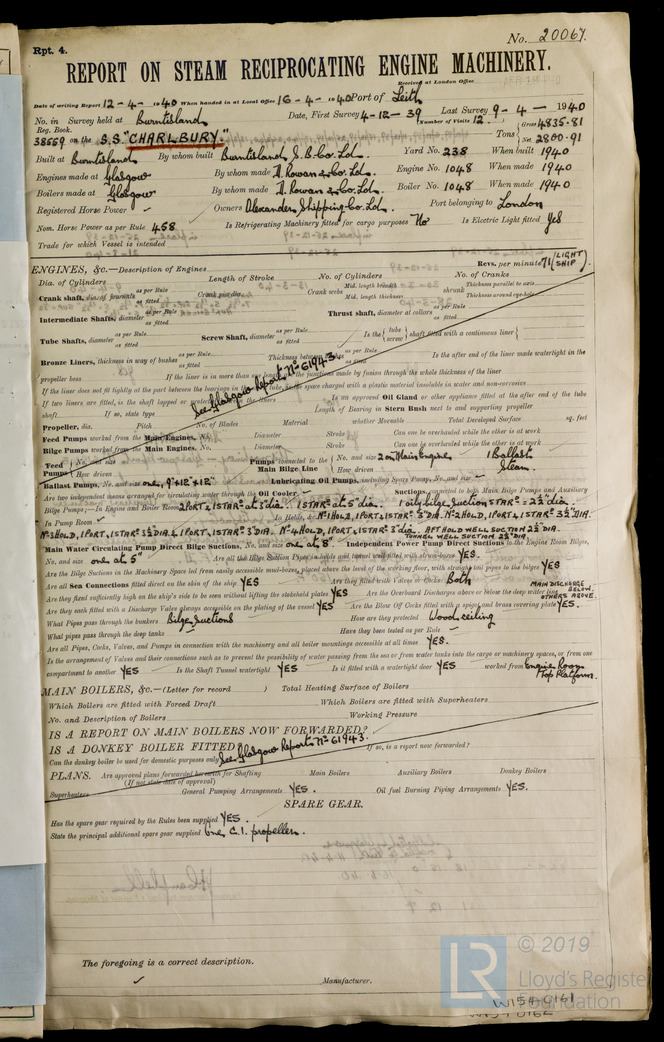 No. 20067.
Rpt. 4.
REPORT ON STEAM RECIPROCATING ENGINE MACHINERY.
Received at London Office
Date of writing Report 12-4-1940 When handed in at Local Office 16-4-1940 Port of Leith
No. in Survey held at Burntisland Date, First Survey 4-12-39 Last Survey 9-4-1940
Reg. Book. (Number of Visits 12)
38559 on the S.S. "CHARLBURY." Tons Gross 4835.81 Net 2800.91
Built at Burntisland By whom built Burntisland S.B. Co. Ld. Yard No. 238 When built 1940
Engines made at Glasgow By whom made D. Rowan & Co. Ld. Engine No. 1048 When made 1940
Boilers made at Glasgow By whom made D. Rowan & Co. Ld. Boiler No. 1048 When made 1940
Registered Horse Power Owners Alexander Shipping Co. Ld. Port belonging to London
Nom. Horse Power as per Rule 458 Is Refrigerating Machinery fitted for cargo purposes No Is Electric Light fitted Yes
Trade for which Vessel is intended
ENGINES, &c.—Description of Engines Revs. per minute 71 (LIGHT SHIP)
Dia. of Cylinders Length of Stroke No. of Cylinders No. of Cranks
Crank shaft, dia. of journals as per Rule as fitted Crank pin dia. Crank webs Mid. length breadth Mid. length thickness shrunk Thickness parallel to axis Thickness around eye-hole
Intermediate Shafts, diameter as per Rule as fitted Thrust shaft, diameter at collars as per Rule as fitted
Tube Shafts, diameter as per Rule as fitted Screw Shaft, diameter as per Rule as fitted Is the { tube screw } shaft fitted with a continuous liner {
Bronze Liners, thickness in way of bushes as per Rule as fitted Thickness between bushes as per Rule as fitted Is the after end of the liner made watertight in the
propeller boss If the liner is in more than one length are the junctions made by fusion through the whole thickness of the liner
See Glasgow Reports No 61943.
If the liner does not fit tightly at the part between the bearings in the tube, is the space charged with a plastic material insoluble in water and non-corrosive
If two liners are fitted, is the shaft lapped or protected between the liners Is an approved Oil Gland or other appliance fitted at the after end of the tube
shaft If so, state type Length of Bearing in Stern Bush next to and supporting propeller
Propeller, dia. Pitch No. of Blades Material whether Moveable Total Developed Surface sq. feet
Feed Pumps worked from the Main Engines, No. Diameter Stroke Can one be overhauled while the other is at work
Bilge Pumps worked from the Main Engines, No. Diameter Stroke Can one be overhauled while the other is at work
Feed Pumps { No. and size How driven Pumps connected to the Main Bilge Line { No. and size 2 on Main Engines 1 Ballast How driven Steam.
Ballast Pumps, No. and size one, 9"x12"x12" Lubricating Oil Pumps, including Spare Pump, No. and size —
Are two independent means arranged for circulating water through the Oil Cooler — Suctions, connected to both Main Bilge Pumps and Auxiliary
Bilge Pumps;—In Engine and Boiler Room 2 PORT & 1 STAR at 3" dia. 1 STAR at 5" dia. 1 oily bilge Suction STAR = 2½" dia.
In Pump Room — In Holds, &c. No1 HOLD, 1 PORT, 1 STAR 3" DIA. No2 HOLD, 1 PORT, 1 STAR 3½" DIA.
No3 HOLD, 1 PORT, 1 STAR 3½" DIA. & 1 PORT, 1 STAR 3" DIA. No4 HOLD, 1 PORT, 1 STAR 3" dia. AFT HOLD WELL SUCTION 2½" DIA. TUNNEL WELL SUCTION 2½" DIA.
Main Water Circulating Pump Direct Bilge Suctions, No. and size one at 8" Independent Power Pump Direct Suctions to the Engine Room Bilges,
No. and size one at 5" Are all the Bilge Suction Pipes in holds and tunnel well fitted with strum-boxes YES.
Are the Bilge Suctions in the Machinery Space led from easily accessible mud-boxes, placed above the level of the working floor, with straight tail pipes to the bilges YES
Are all Sea Connections fitted direct on the skin of the ship YES Are they fitted with Valves or Cocks Both
Are they fixed sufficiently high on the ship's side to be seen without lifting the stokehold plates YES Are the Overboard Discharges above or below the deep water line MAIN DISCHARGE BELOW. OTHERS ABOVE.
Are they each fitted with a Discharge Valve always accessible on the plating of the vessel YES Are the Blow Off Cocks fitted with a spigot and brass covering plate YES.
What Pipes pass through the bunkers Bilge Suctions How are they protected Wood ceiling
What pipes pass through the deep tanks Have they been tested as per Rule —
Are all Pipes, Cocks, Valves, and Pumps in connection with the machinery and all boiler mountings accessible at all times YES.
Is the arrangement of Valves and their connections such as to prevent the possibility of water passing from the sea or from water tanks into the cargo or machinery spaces, or from one
compartment to another YES Is the Shaft Tunnel watertight YES Is it fitted with a watertight door YES worked from Engine Room Top Platform.
MAIN BOILERS, &c.—(Letter for record ) Total Heating Surface of Boilers
Which Boilers are fitted with Forced Draft Which Boilers are fitted with Superheaters
No. and Description of Boilers Working Pressure
IS A REPORT ON MAIN BOILERS NOW FORWARDED?
IS A DONKEY BOILER FITTED If so, is a report now forwarded?
See Glasgow Reports No 61943.
Can the donkey boiler be used for domestic purposes only
PLANS. Are approved plans forwarded herewith for Shafting Main Boilers Auxiliary Boilers Donkey Boilers
(If not state date of approval)
Superheaters General Pumping Arrangements YES. Oil fuel Burning Piping Arrangements YES.
SPARE GEAR.
Has the spare gear required by the Rules been supplied YES.
State the principal additional spare gear supplied One C.I. propeller.
The foregoing is a correct description.
Manufacturer.
LR © 2019
Lloyd's Register
Foundation
W154-0161